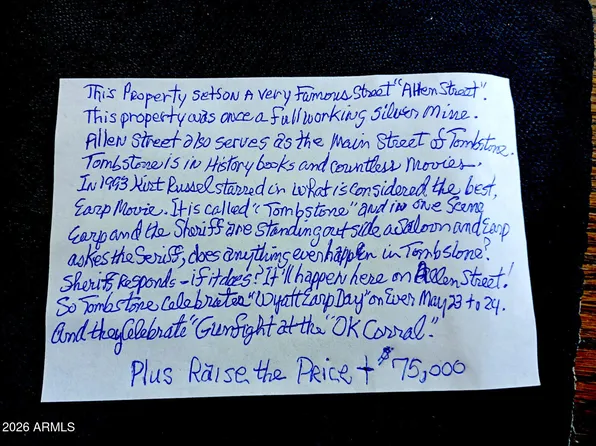 This Property setson A very Famous Street "Allen Street".
This property was once a full working Silver Mine.
Allen Street also serves as the Main Street of Tombstone.
Tombstone is in History books and countless Movies.
In 1993 Kurt Russel starred in what is considered the best,
Earp Movie. It is called "Tombstone" and in one Scene
Earp and the Sheriff are standing out side a Saloon and Earp
askes the Seriff, does anything ever happen in Tombstone?
Sheriff Responds - if it does? It'll happen here on Allen Street!
So Tombstone Celebrates "Wyatt Earp Day" on Ever May 23 to 24.
And they Celebrate "Gunfight at the "OK Corral".
Plus Raise the Price + $75,000
2026 ARMLS